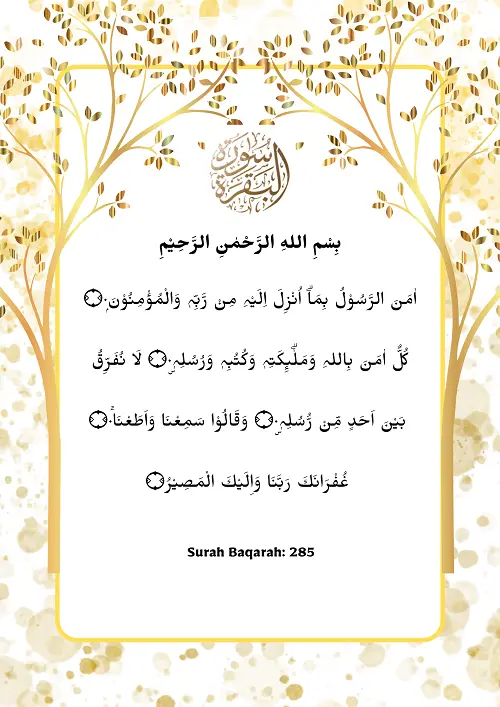 سورة البقرة
بِسْمِ اللهِ الرَّحْمٰنِ الرَّحِيْمِ
اٰمَنَ الرَّسُوْلُ بِمَاۤ اُنْزِلَ اِلَيْهِ مِنْ رَّبِّهٖ وَالْمُؤْمِنُوْنَؕ۝
كُلٌّ اٰمَنَ بِاللهِ وَمَلٰٓئِكَتِهٖ وَكُتُبِهٖ وَرُسُلِهٖ۝ لَا نُفَرِّقُ
بَيْنَ اَحَدٍ مِّنْ رُّسُلِهٖ۝ وَقَالُوْا سَمِعْنَا وَاَطَعْنَا۝
غُفْرَانَكَ رَبَّنَا وَاِلَيْكَ الْمَصِيْرُ۝
Surah Baqarah: 285